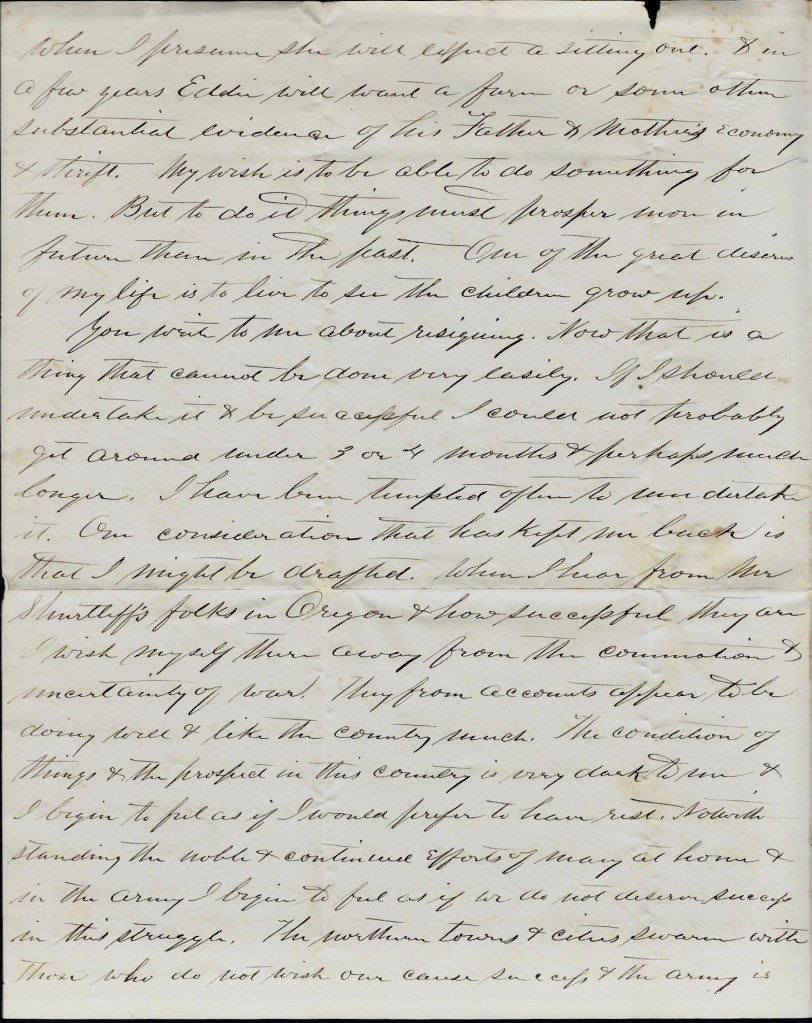 When I presume she will expect a sitting out. & in
a few years Eddie will want a farm or some other
substantial evidence of his Father & Mother's Economy
& thrift. My wish is to be able to do something for
them. But to do it things must prosper more in
future than in the past. One of the great desires
of my life is to live to see the children grow up.
You write to me about resigning. Now that is a
thing that cannot be done very easily. If I should
undertake it & be successful I could not probably
get around under 3 or 4 months & perhaps much
longer. I have been tempted often to undertake
it. One consideration that has kept me back is
that I might be drafted. When I hear from Mr
Shurtliff's folks in Oregon & how successful they are
I wish myself there away from the commotion &
uncertainty of war! They from accounts appear to be
doing well & like the country much. The condition of
things & the prospect in this country is very dark to me &
I begin to feel as if I would prefer to have rest. Notwith
standing the noble & continued efforts of many at home &
in the army I begin to feel as if we do not deserve success
in this struggle. The northern towns & cities swarm with
those who do not wish our cause success & the army is